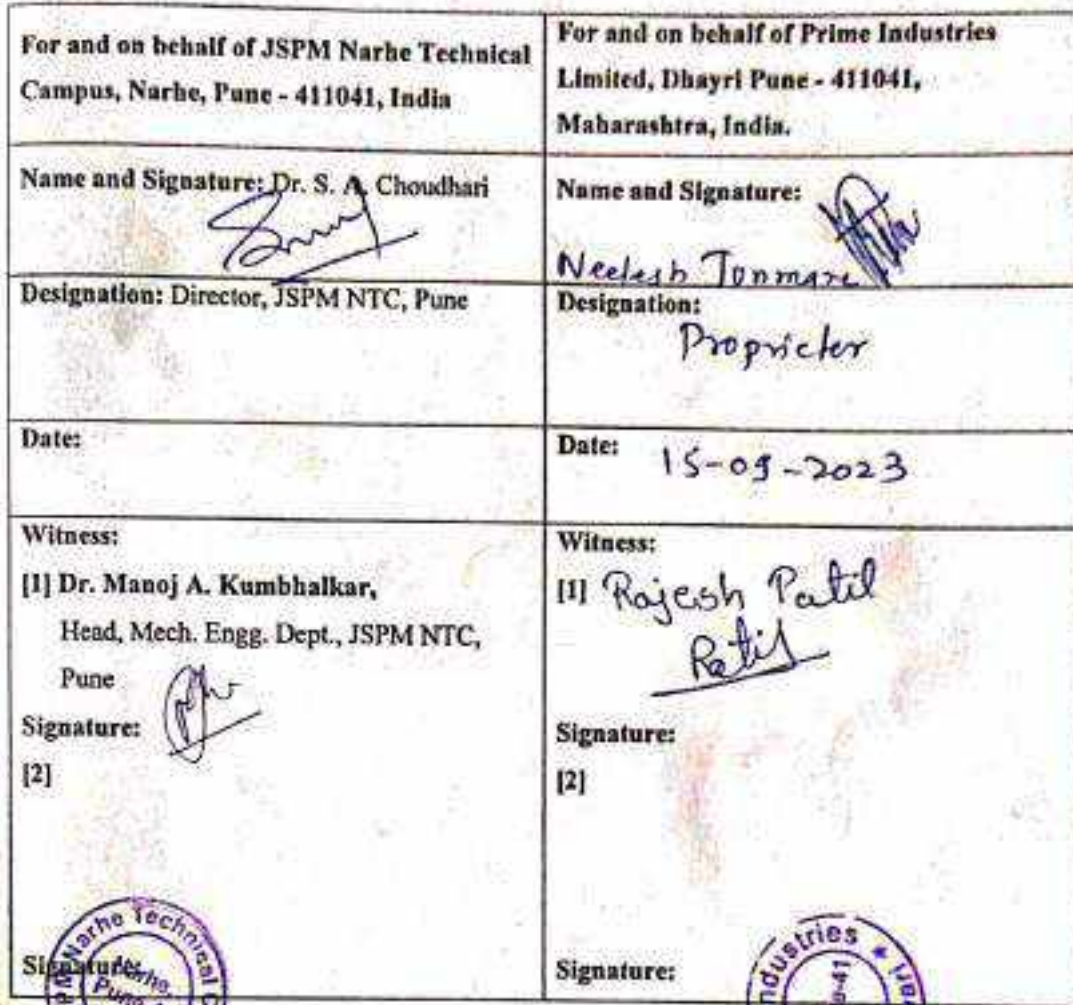 For and on behalf of JSPM Narhe Technical
Campus, Narhe, Pune - 411041, India
For and on behalf of Prime Industries
Limited, Dhayri Pune - 411041,
Maharashtra, India.
Name and Signature: Dr. S. A. Choudhari
Name and Signature:
Neelesh
Designation: Director, JSPM NTC, Pune
Designation:
Proprieter
Date:
Date: 15-09-2023
Witness:
[1] Dr. Manoj A. Kumbhalkar,
Head, Mech. Engg. Dept., JSPM NTC,
Pune
Signature:
[2]
Signature:
Narhe Technical
Narhe,
Witness:
[1] Rajesh Patil
Patil
Signature:
[2]
Signature: